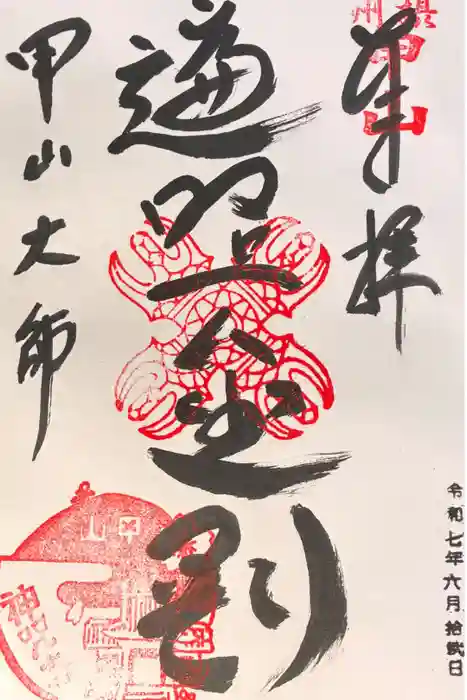 摂州
甲山
奉拝
遍照金剛
甲山大師
甲山
令和七年六月拾弐日